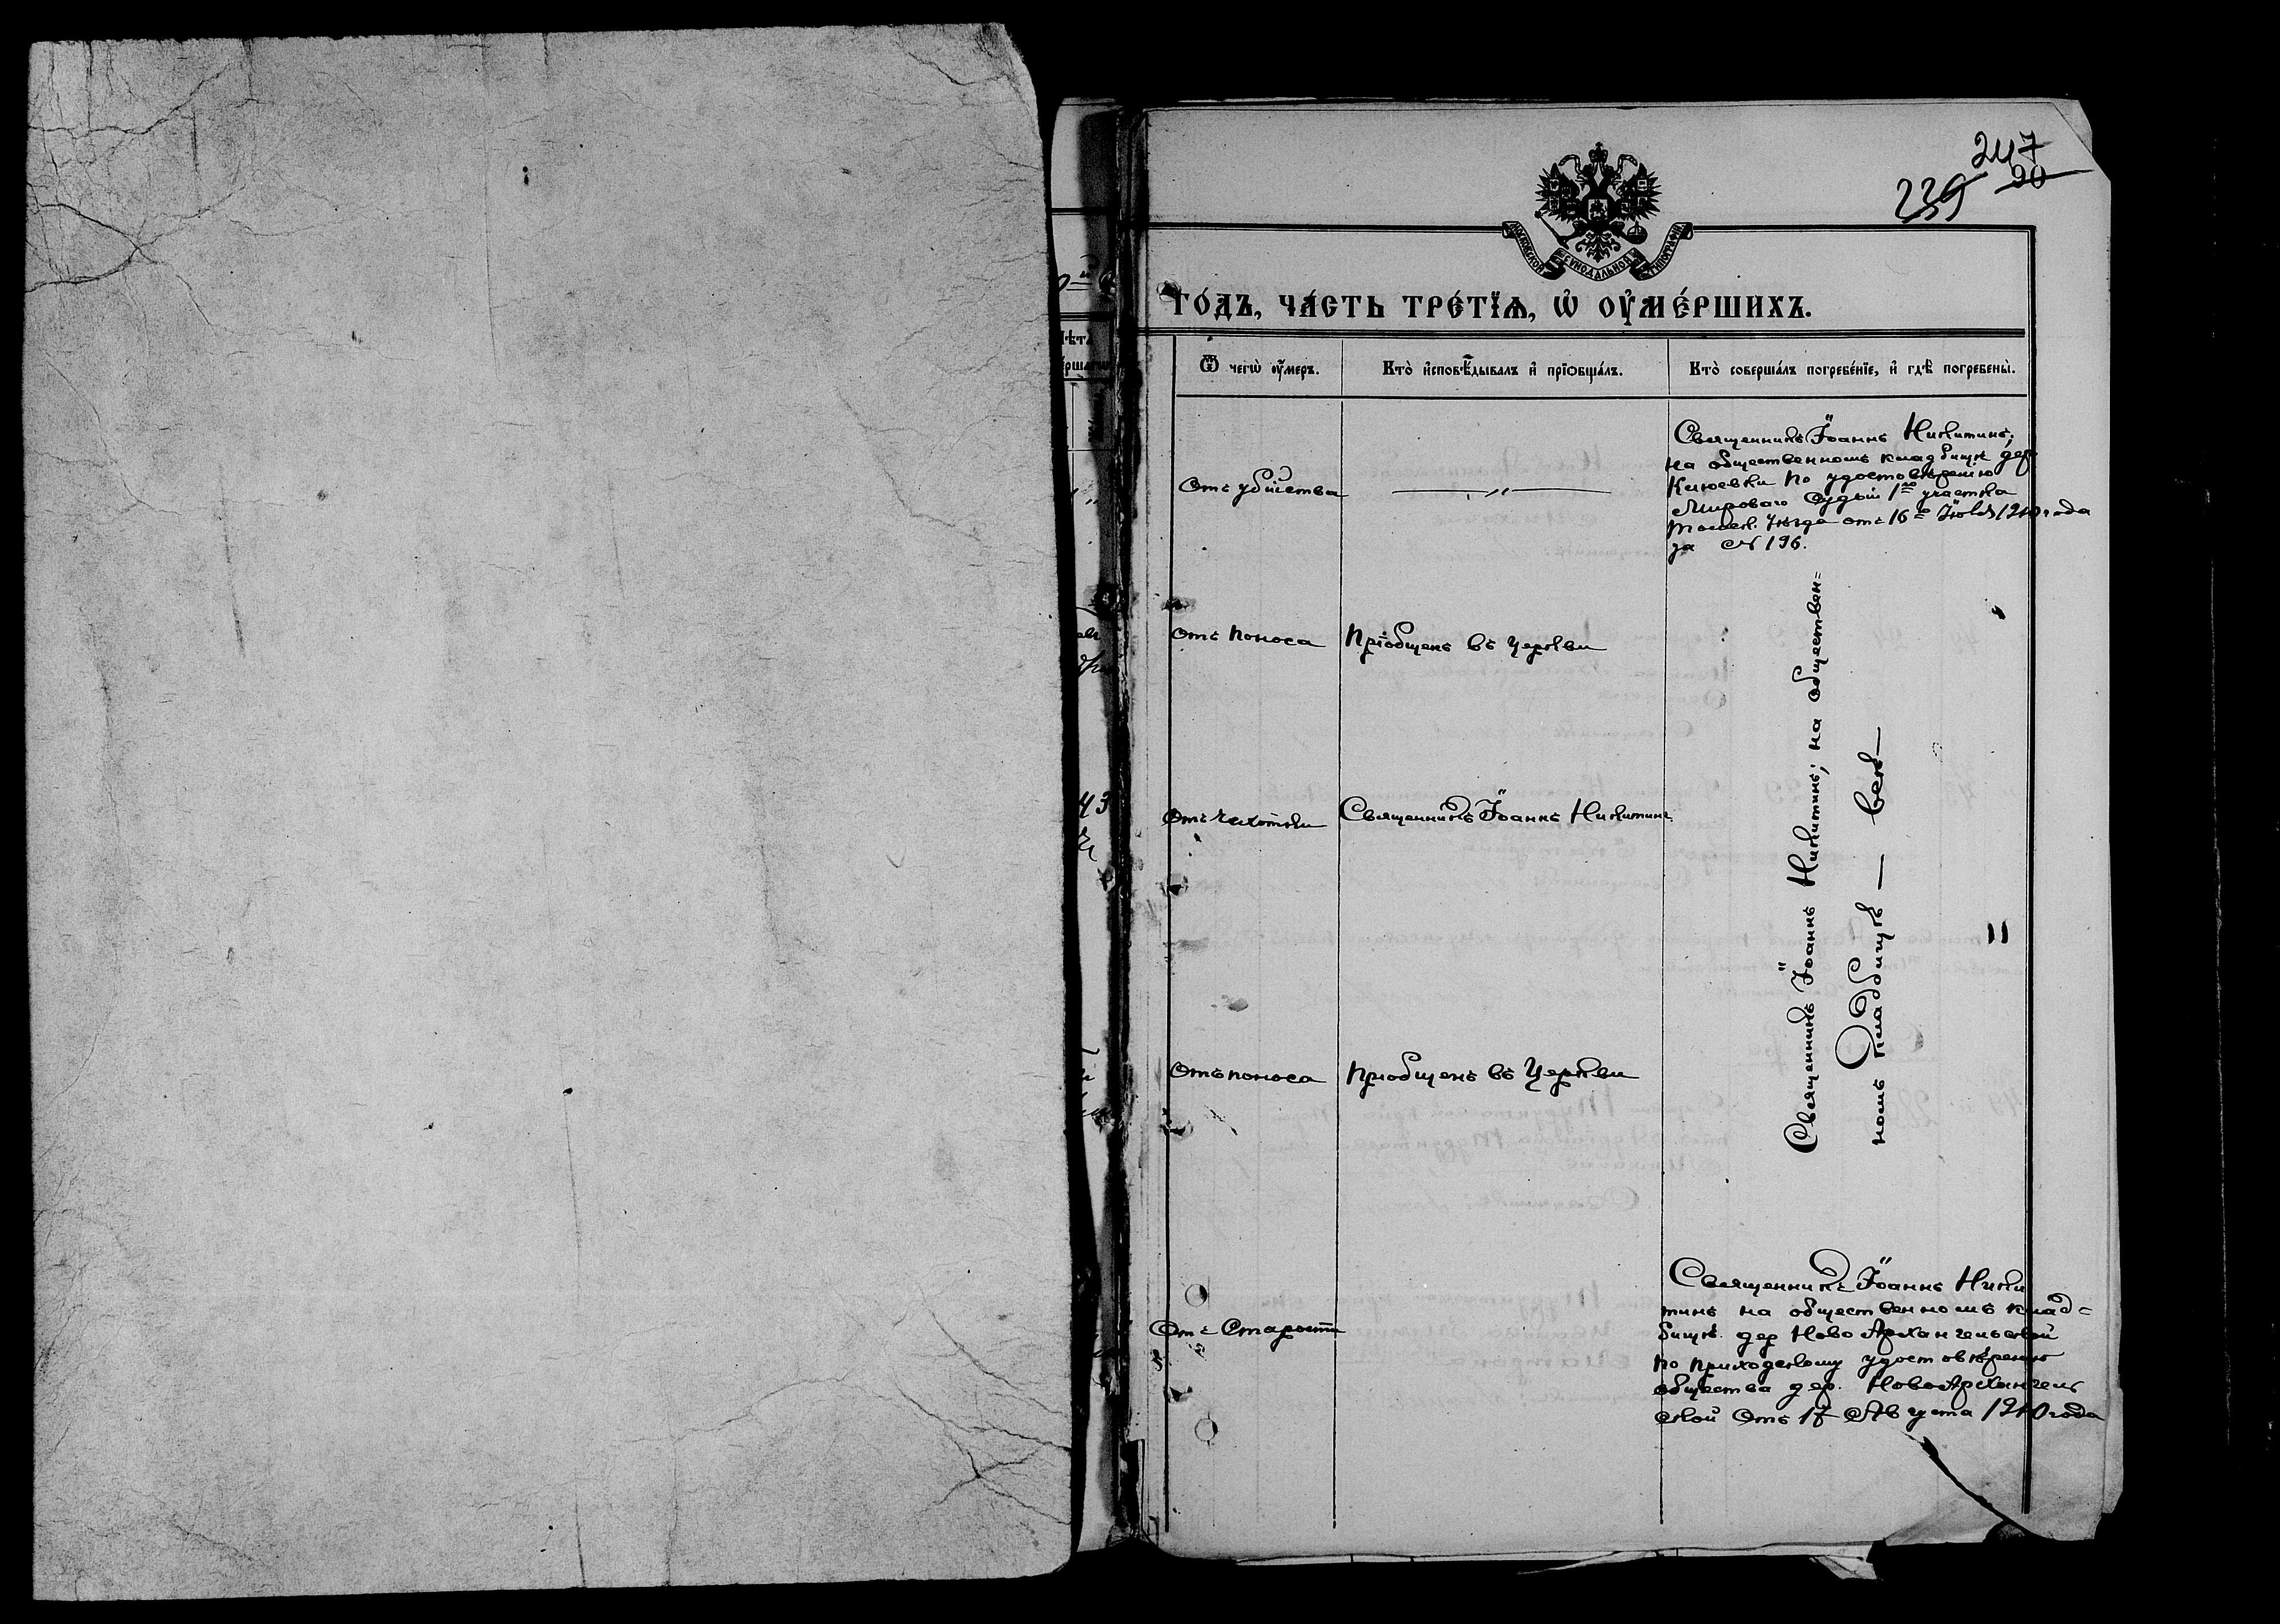 247
239 90
МОСКОВСКОЙ СѴНОДАЛЬНОЙ ТИПОГРАФІИ
ГО́ДЪ, ЧА́СТЬ ТРЕ́ТЇѦ, Ѡ҆ ОУ҆МЕ́РШИХЪ.
Ѿ чегѡ̀ оу҆́меръ.
Кто̀ и҆сповѣ́дывалъ и҆ прїѡбща́лъ.
Кто̀ соверша́лъ погребе́нїе, и҆ гдѣ̀ погребены̀.
Отъ убійства
—„—
Священникъ Іоаннъ Никитинъ;
на общественномъ кладбищѣ дер
Клюевки по удостовѣренію
Мироваго Судьи 1го участка
Томск. Уѣзда отъ 16го Іюля 1910 года
за № 196.
Отъ поноса
Пріобщенъ въ Церкви
Отъ чахотки
Священникъ Іоаннъ Никитинъ
Священникъ Іоаннъ Никитинъ; на обществен=
номъ кладбищѣ — всѣхъ —
Отъ поноса
Пріобщенъ въ Церкви
Отъ Старости
Священникъ Іоаннъ Ники
тинъ на общественномъ клад=
бищѣ дер Ново Архангельской
по приходскому удостовѣренію
общества дер. НовоАрхангель
ской Отъ 17 Августа 1910 года